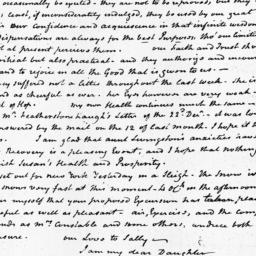 occasionally be excited. They are not to be reproved, but they
is kind, if immoderately indulged, they be used by our great
his own confidence and acquiescence in that infinite wisdom
Dispensations are always for the best Purposes tho' our limited
at present perceive them. our faith and trust should
critical but also practical - and they authorize and encourage
and to rejoice in all the Good that is given to us -
suffered not a letter throughout the last week. She is
and as cheerful as ever. her Eyes however are very weak -
of Hof. my own Health continues much the same -
Mr. Heathersonhaugh's Letter of the 22d. Decr. - it was
answered by the mail on the 12 of last month. I hope it has
I am glad that aunt Livingstons anxieties have
Recovery is a pleasing Event, and I hope that nothing
with Susan's Health and Prosperity.
set out for new York yesterday in a Sleigh. The Snow is
snows very fast at this moment - 4 oC. in the afternoon
myself that your proposed Excursion has taken place
useful as well as pleasant - air, Exercise, and the company
as Mrs. Constable and some others, induce both
pleasure. our Love to Sally -
I am my dear Daughter